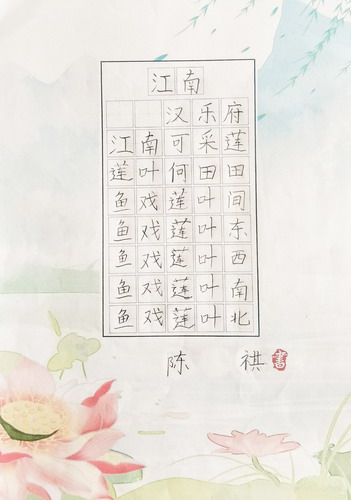 江南
汉乐府
江南可采莲
莲叶何田田
鱼戏莲叶间
鱼戏莲叶东
鱼戏莲叶西
鱼戏莲叶南
鱼戏莲叶北
陈祺书